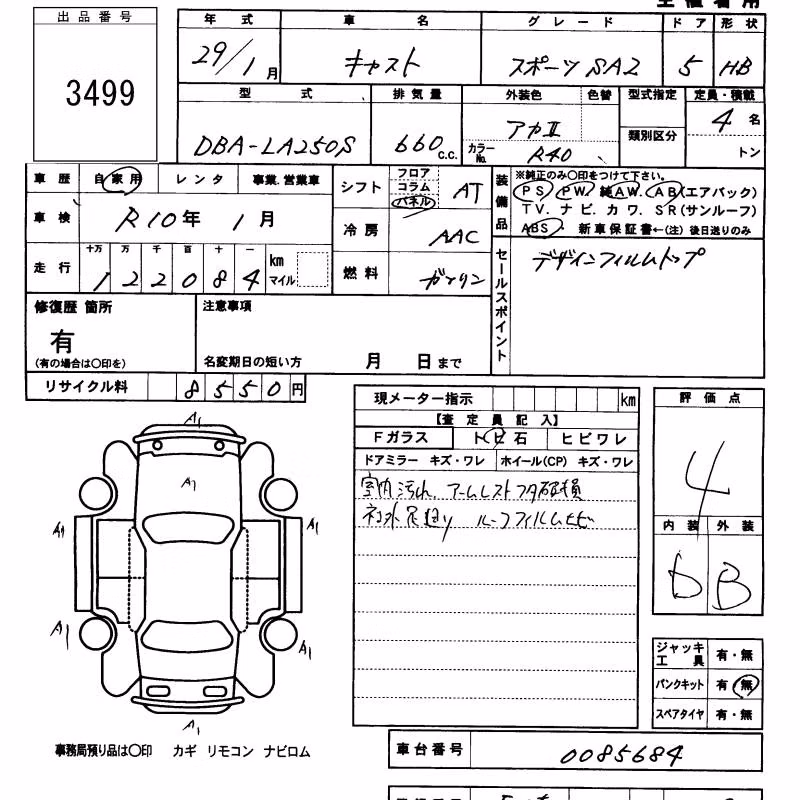 出品番号
3499
年式 車名 グレード ドア 形状
29/1月 キャスト スポーツSA2 5 HB
型式 排気量 外装色 色替 型式指定 定員・積載
DBA-LA250S 660 c.c. アカⅡ 類別区分 4名
カラーNo. R40 トン
車歴 自家用 レンタ 事業.営業車
シフト フロア コラム パネル AT
装備品 ※純正のみ○印をつけて下さい。
PS PW 純AW. AB(エアバック)
TV. ナビ. カワ. SR(サンルーフ)
ABS. 新車保証書←(注) 後日送りのみ
車検 R10年 1月
冷房 AAC
走行 十万 万 千 百 十 一
122084 km マイル
燃料 ガソリン
セールスポイント デザインフィルムトップ
修復歴 箇所
有
(有の場合は○印を)
注意事項
名変期日の短い方 月 日まで
リサイクル料 8550円
現メーター指示 km
【査定員記入】
Fガラス トビ石 ヒビワレ
ドアミラー キズ・ワレ ホイール(CP) キズ・ワレ
室内汚れ アームレストフタ破損
社外足廻り ルーフフィルムヒビ
評価点
4
内装 外装
D B
A1
A1
A1 A1
A1 A1
A1
ジャッキ工具 有・無
パンクキット 有・無
スペアタイヤ 有・無
事務局預り品は○印 カギ リモコン ナビロム
車台番号 0085684